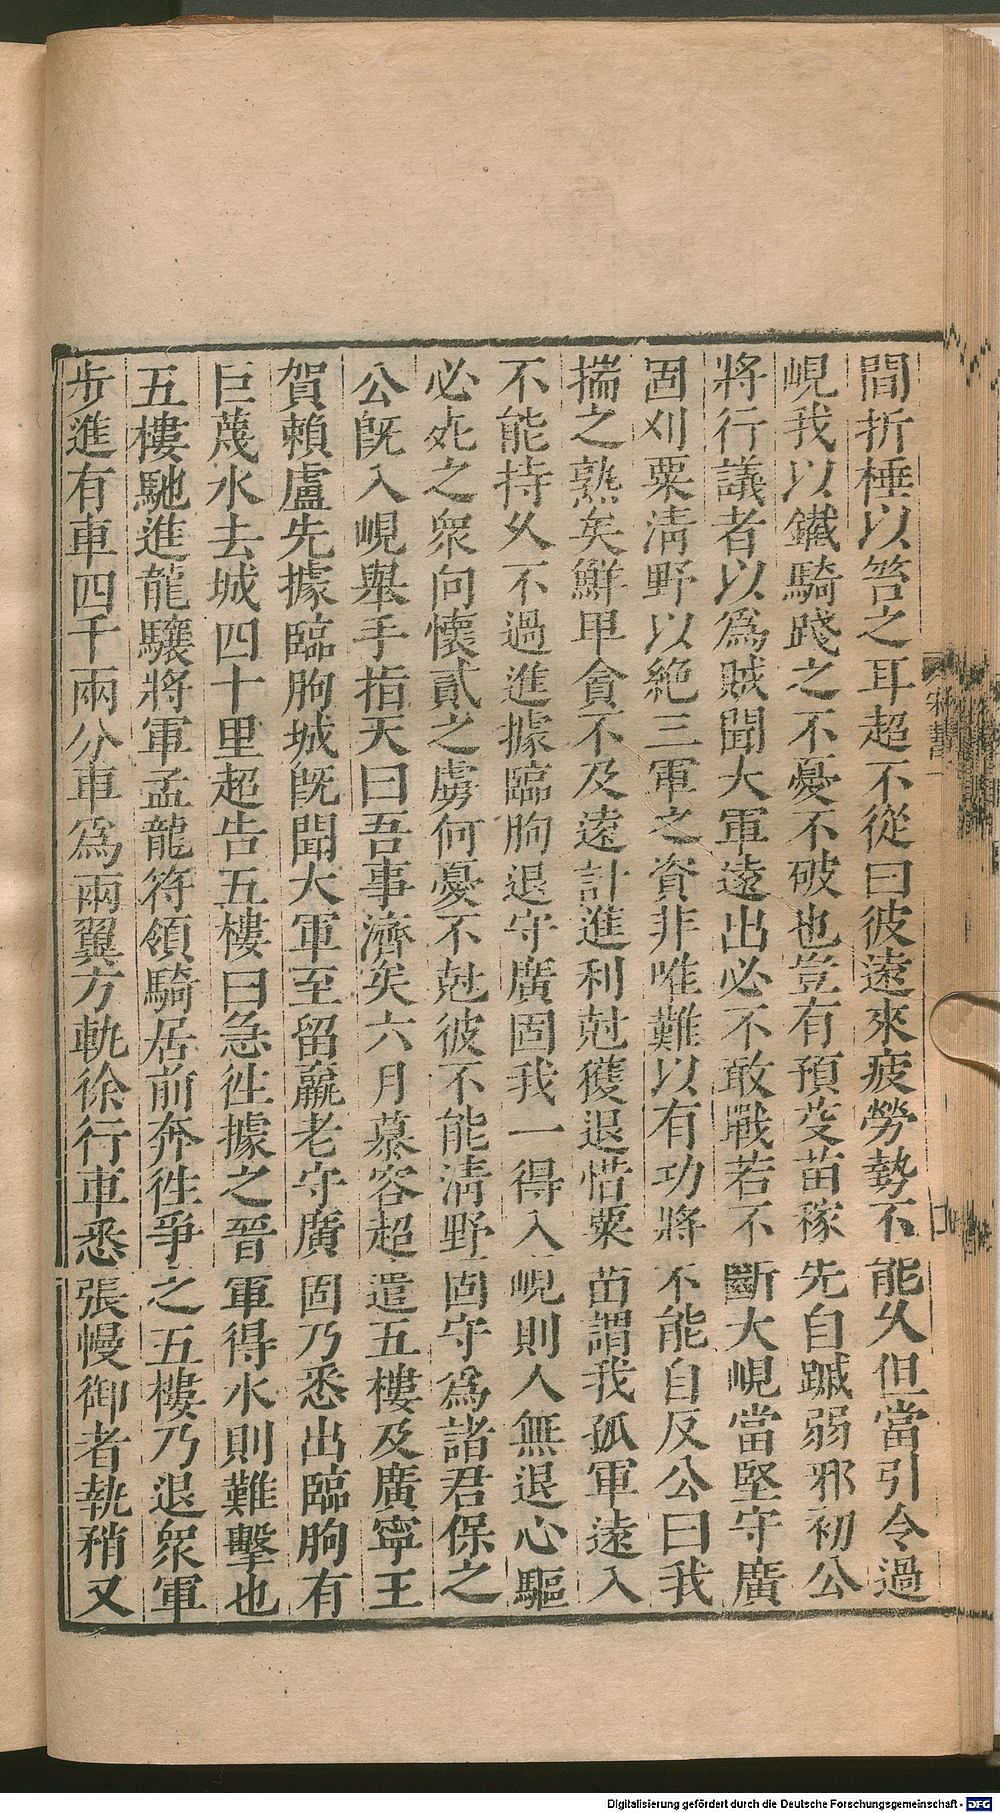 間折棰以笞之耳超不從曰彼遠來疲勞勢不能乆但當引令過
峴我以鐵騎踐之不憂不破也豈有預芟苗稼先自蹙弱邪初公
將行議者以爲賊聞大軍遠出必不敢戰若不斷大峴當堅守廣
固刈粟淸野以絶三軍之資非唯難以有功將不能自反公曰我
揣之熟矣鮮甲貪不及遠計進利尅獲退惜粟苗謂我孤軍遠入
不能持乆不過進據臨朐退守廣固我一得入峴則人無退心驅
必死之衆向懷貳之虜何憂不尅彼不能淸野固守爲諸君保之
公旣入峴舉手指天曰吾事濟矣六月慕容超遣五樓及廣寧王
賀賴盧先據臨朐城旣聞大軍至留羸老守廣固乃悉出臨朐有
巨蔑水去城四十里超告五樓曰急徃據之晉軍得水則難擊也
五樓馳進龍驤將軍孟龍符領騎居前奔徃爭之五樓乃退衆軍
步進有車四千兩分車爲兩翼方軌徐行車悉張幔御者執矟又
Digitalisierung gefördert durch die Deutsche Forschungsgemeinschaft - DFG